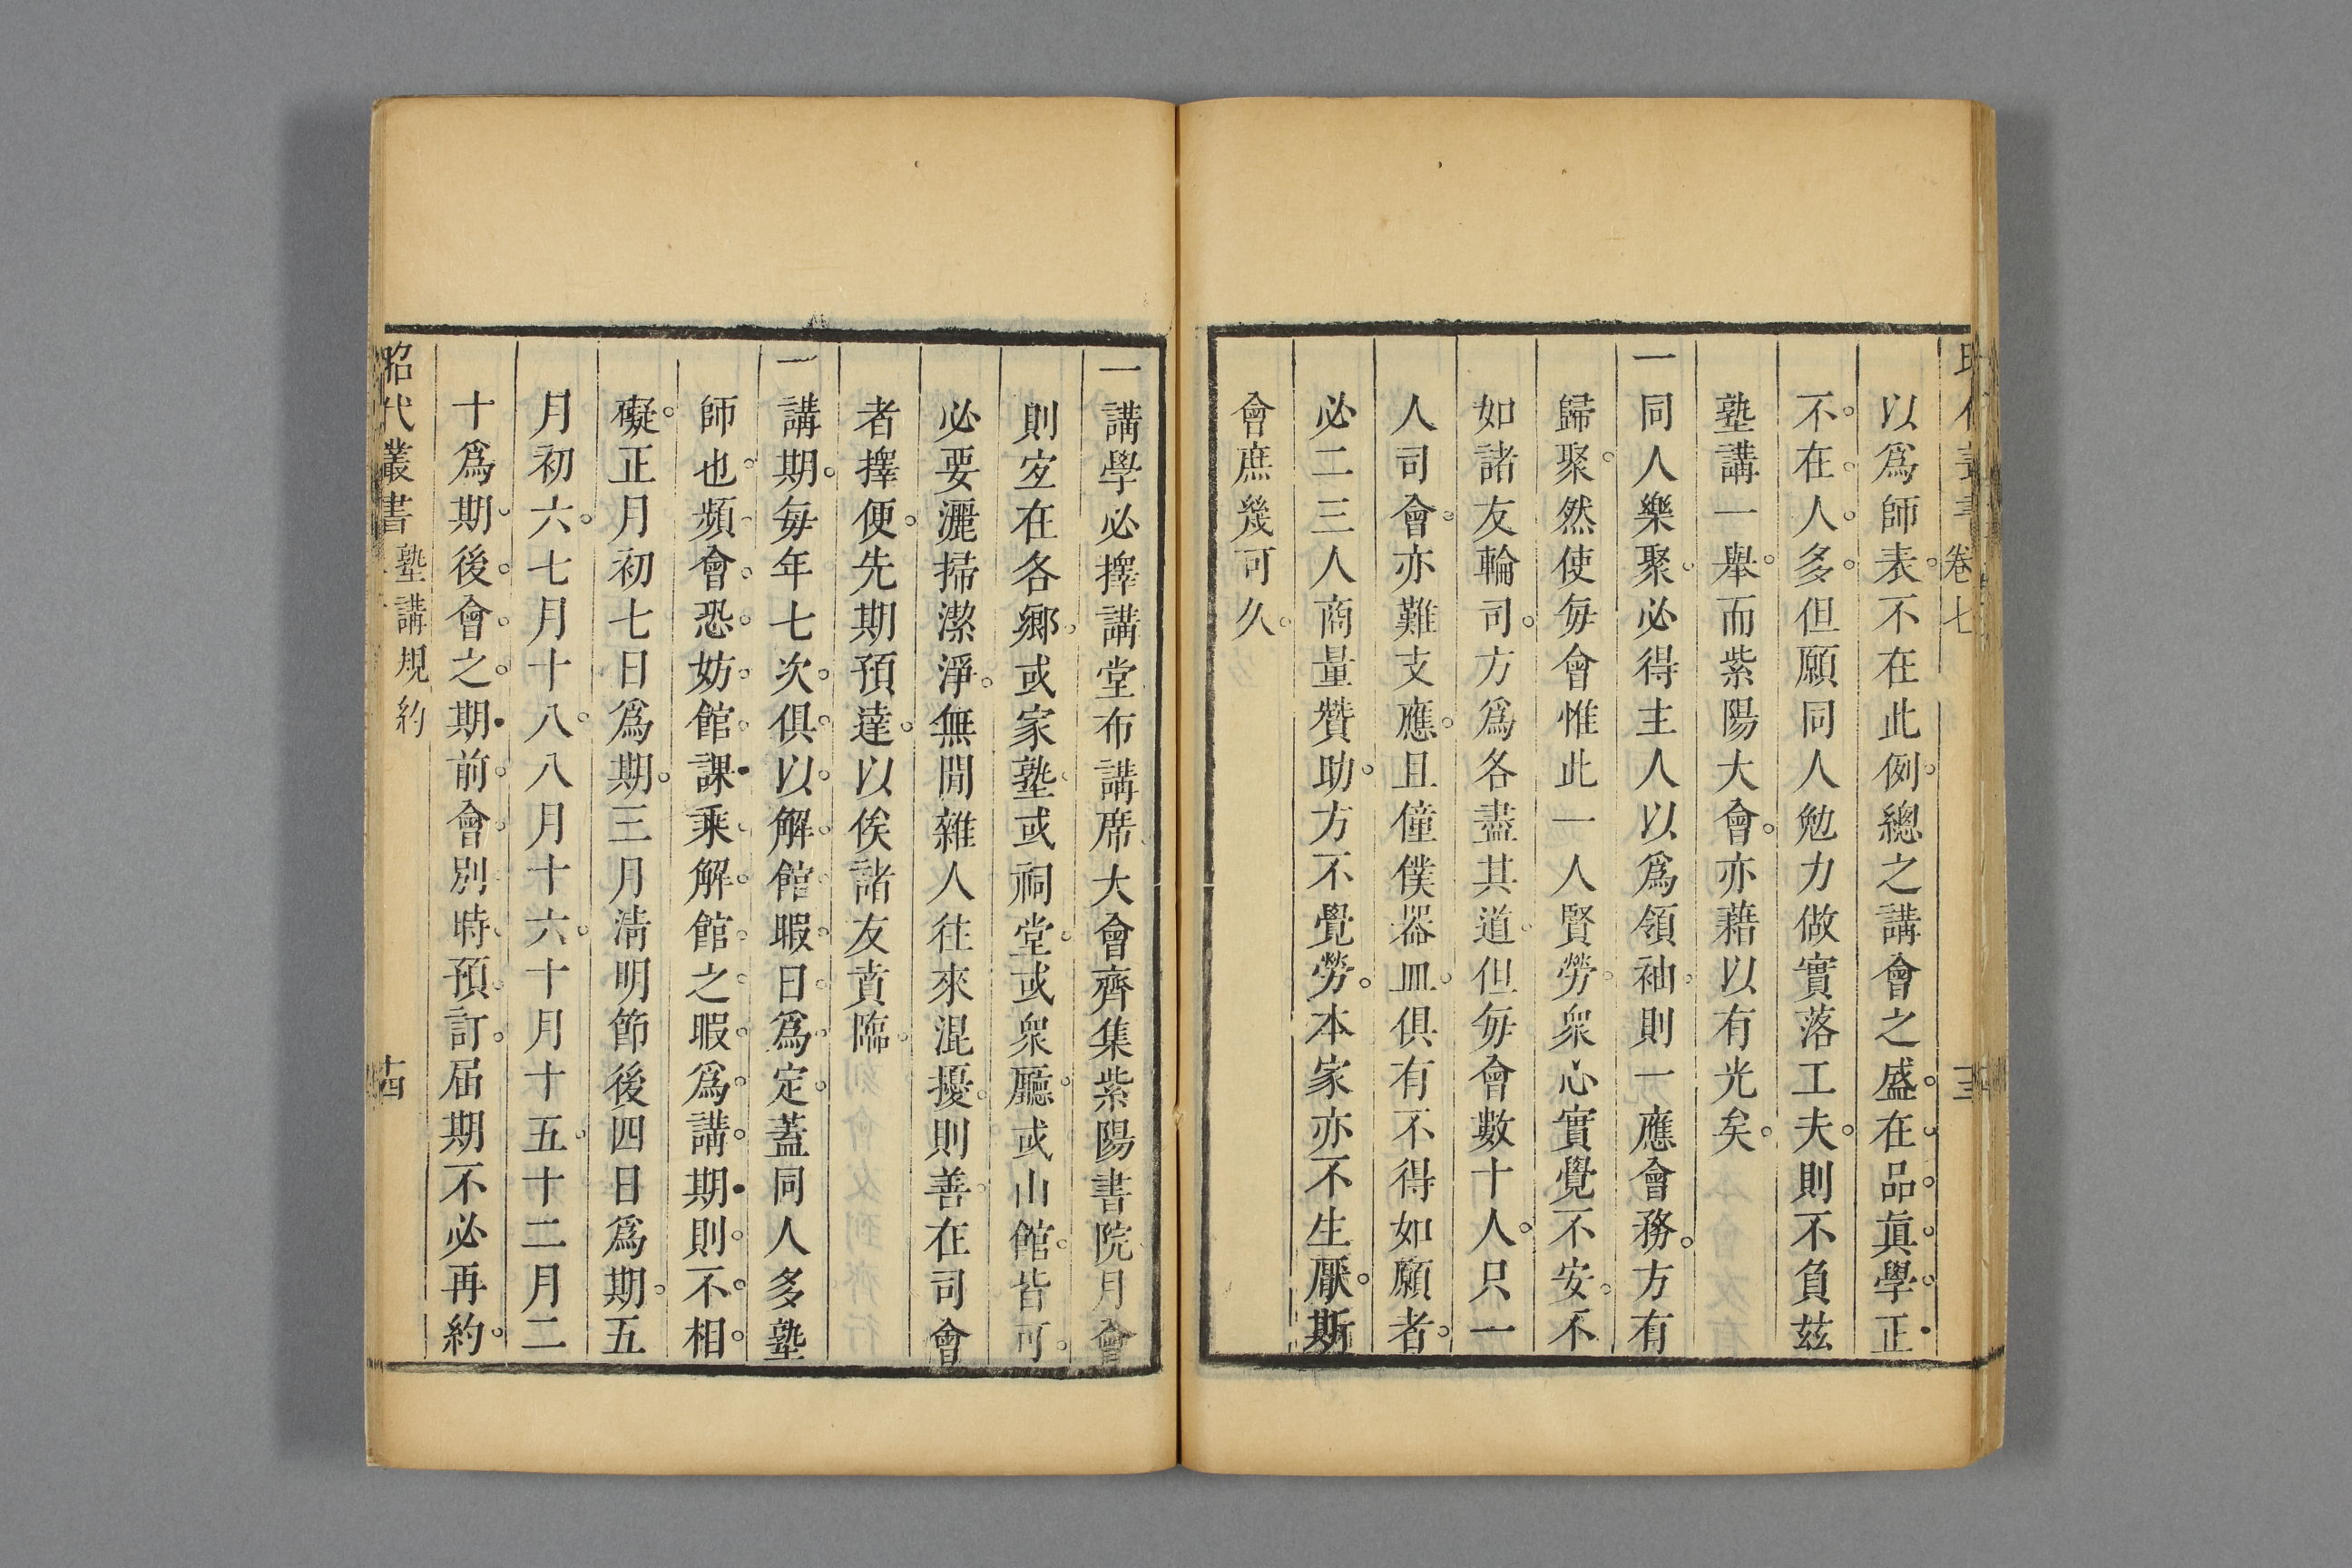 卷七
以爲師表。不在此例。總之講會之盛。在品眞。學正
不。在。人。多。但願同人勉力做實落工夫。則不負玆
塾講一舉。而紫陽大會。亦藉以有光矣。
一同人樂聚。必得主人以爲領袖。則一應會務。方有
歸聚。然使每會惟此一人賢勞。衆心實覺不安。不
如諸友輪司。方爲各盡其道。但每會數十人。只一
人司會。亦難支應。且僮僕器皿。俱有不得如願者。
必二三人商量贊助。方不覺勞。本家亦不生厭。斯
會庶幾可久。
一講學必擇講堂布講席。大會齊集紫陽書院。月會
則㝎在各鄉。或家塾。或祠堂。或衆廳。或山館。皆可。
必要灑掃潔淨。無閒雜人往來混擾。則善。在司會
者擇便。先期預達。以俟諸友賁臨。
一講期。每年七次。俱。以。解。館。暇。日。爲。定。蓋同人多塾
師也。頻。會。恐。妨。館。課。乘。解。館。之。暇。爲。講。期。則。不。相。
礙。正月初七日爲期。三月淸明節後四日爲期。五
月初六。七月十八。八月十六。十月十五。十二月二
十爲期。後。會。之。期。前。會。別。時。預。訂。屆期不必再約。
昭代叢書 塾講規約 十四